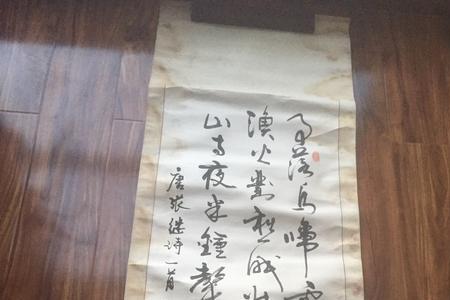 月落烏啼
漁火對愁眠
山寺夜半鐘聲
唐張继诗一首